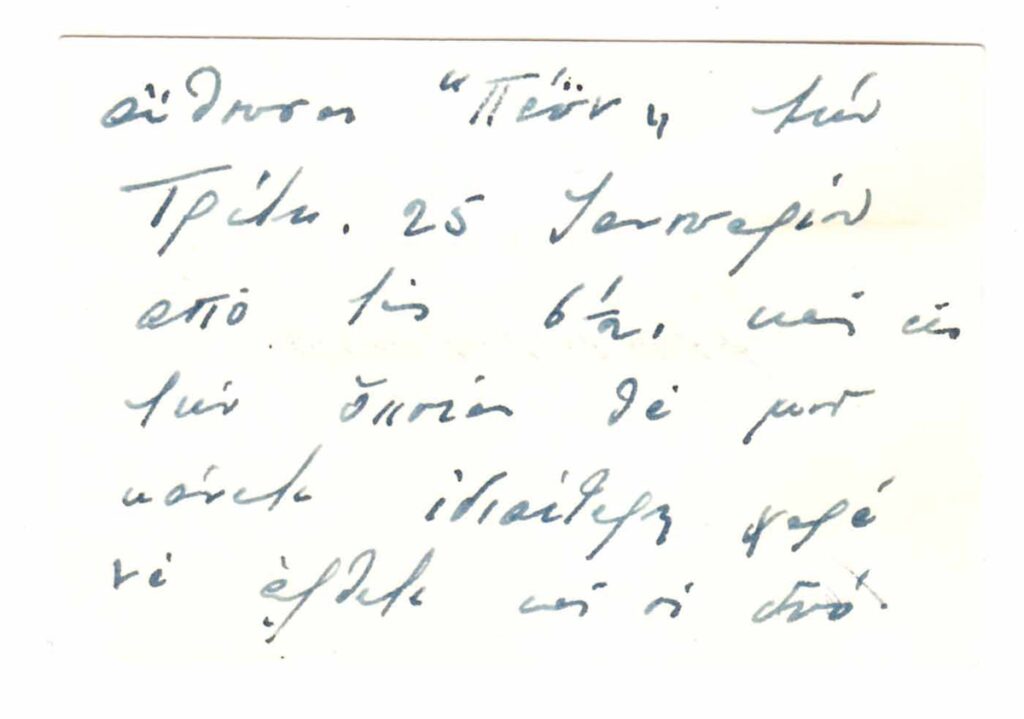 αἴθουσα "Πέϋν" τήν
Τρίτη. 25 Ἰανουαρίου
ἀπό τίς 6 1/2. καί εἰς
τήν ὁποία θά μου
κάνετε ἰδιαίτερη χαρά
νά ἔρθετε καί οἱ δυό.